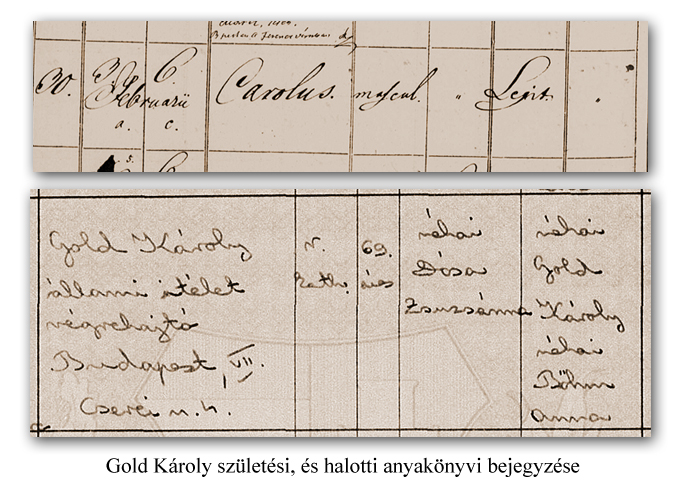 30.
3. 6.
Februarii
a. c.
Carolus.
mascul. " Legit. "
Gold Károly
állami ítélet
végrehajtó
Budapest, VII.
Cserei u. 4.
r.
kath.
69.
éves
néhai
Dósa
Zsuzsánna
néhai
Gold
Károly
néhai
Böhm
Anna
Gold Károly születési, és halotti anyakönyvi bejegyzése